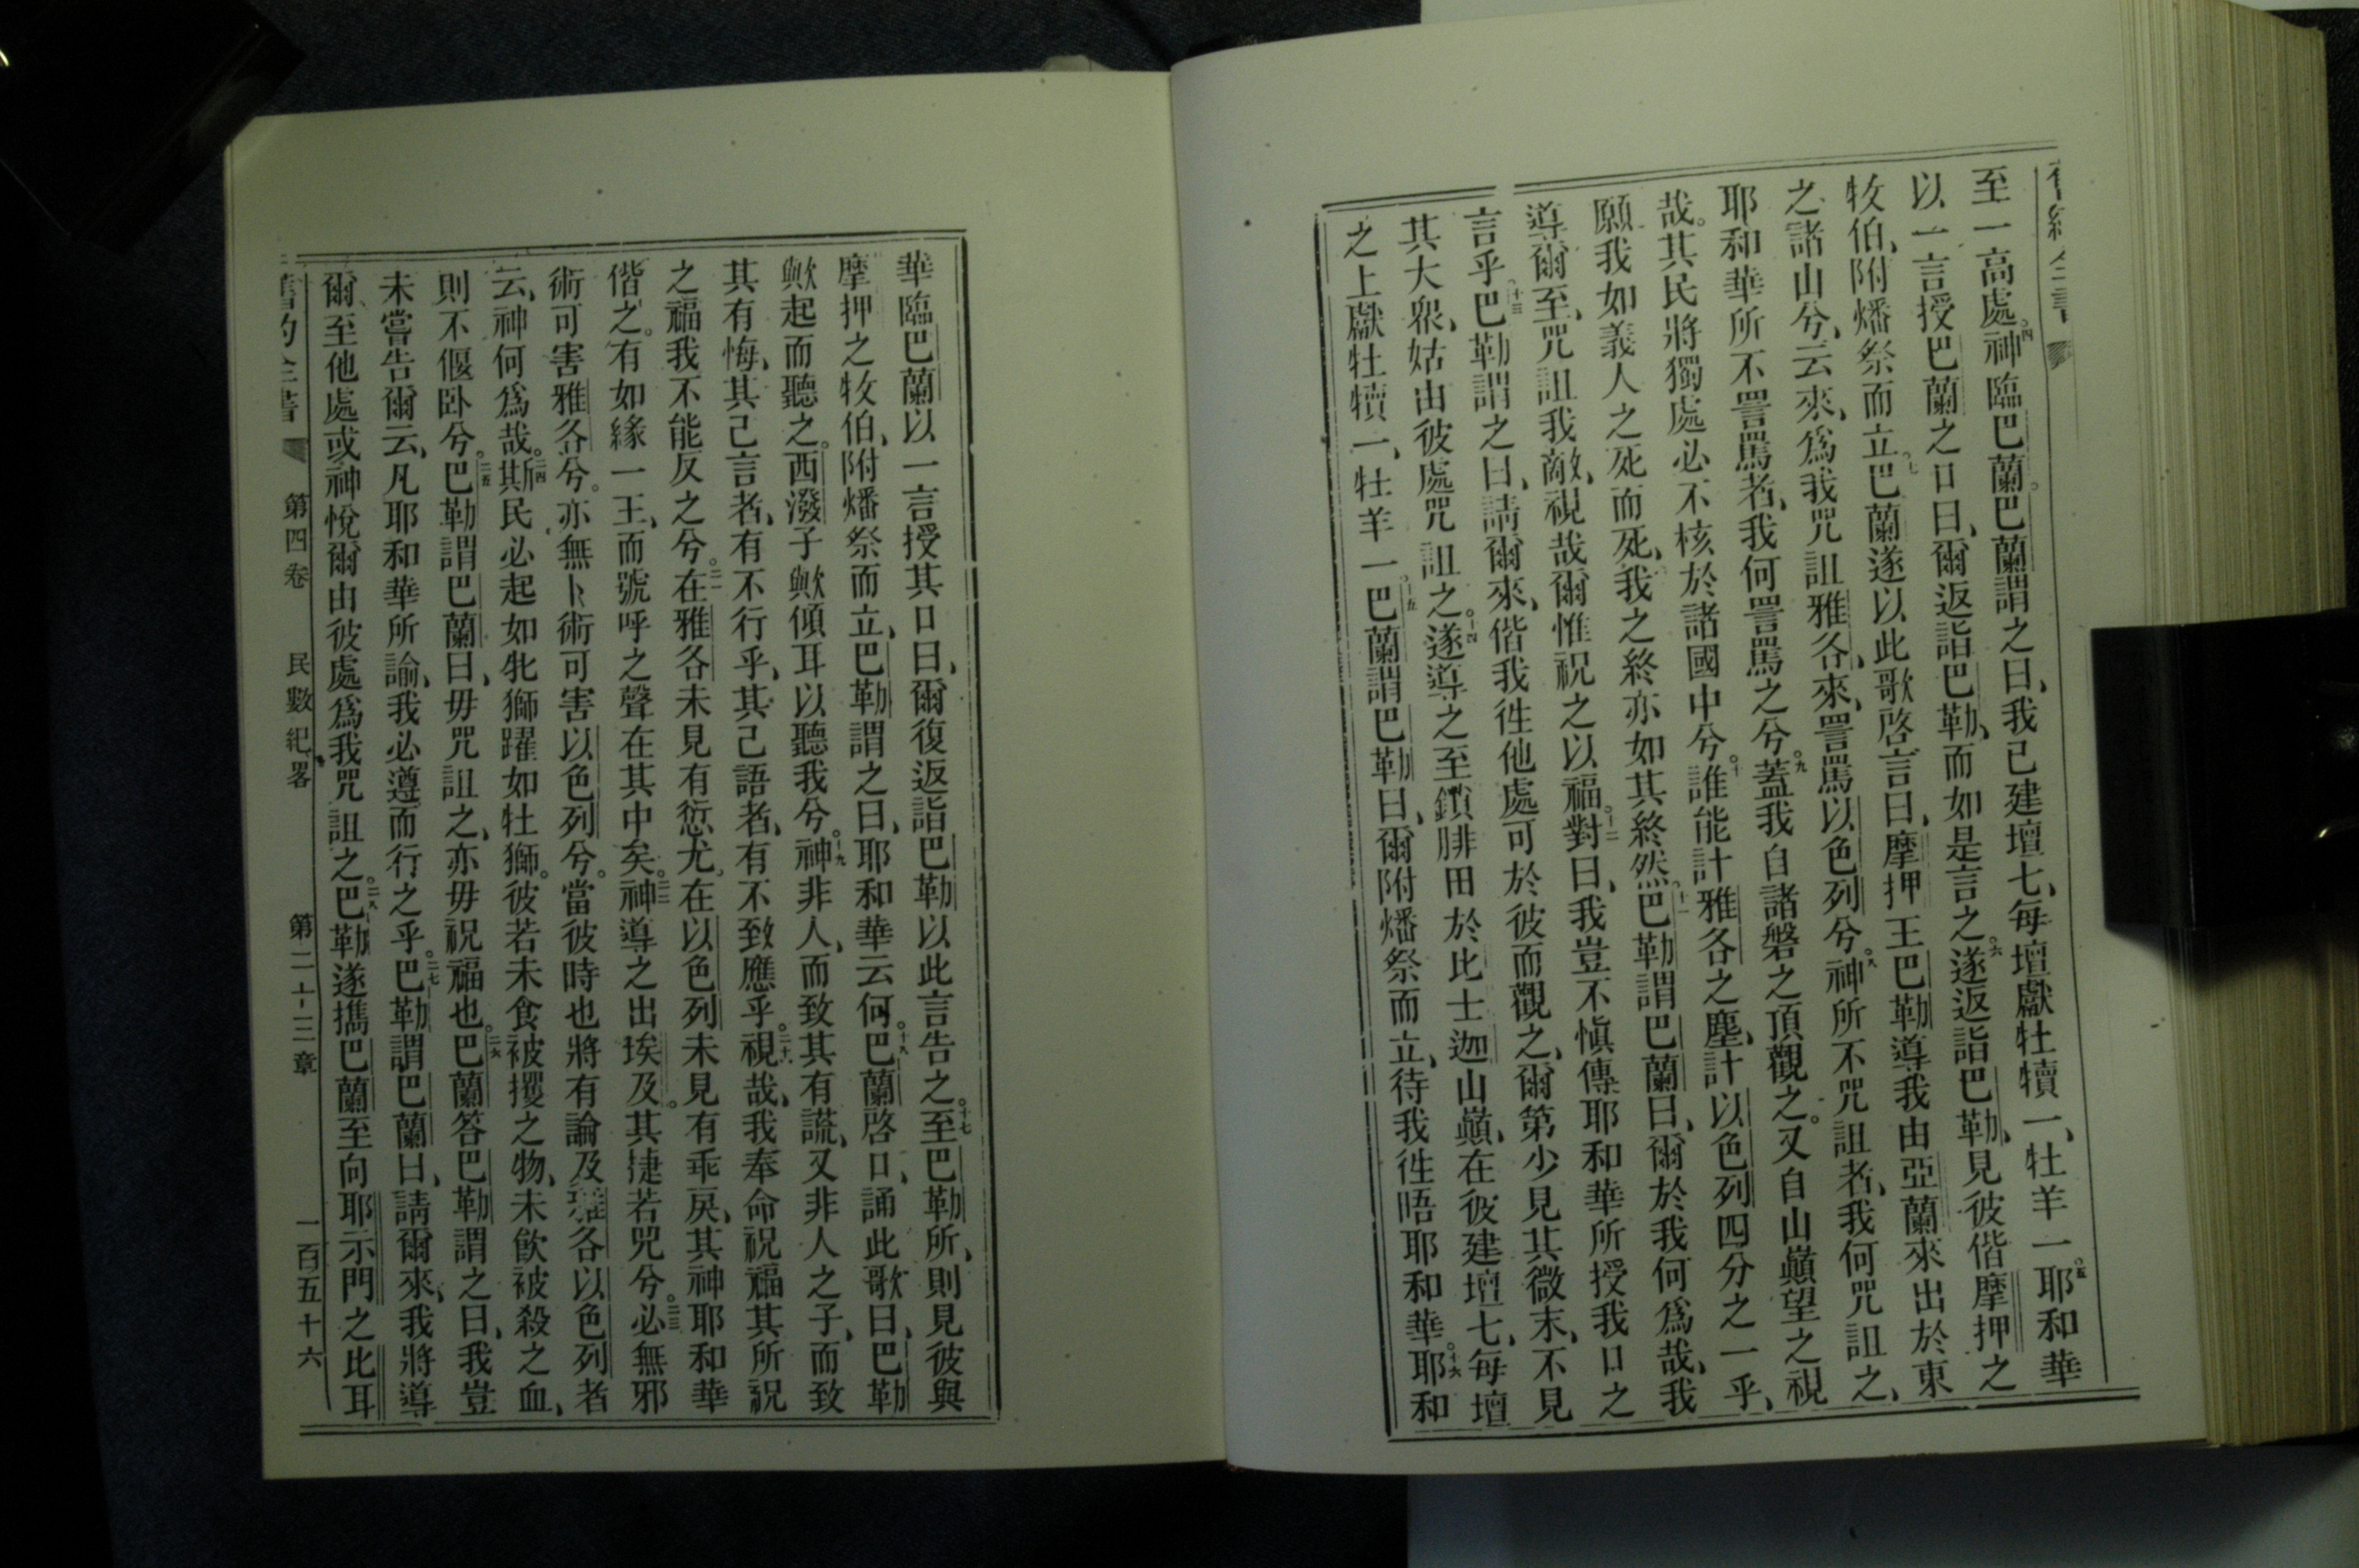 至一高處。四神臨巴蘭。巴蘭謂之曰、我已建壇七、每壇獻牡犢一、牡羊一。五耶和華
以一言授巴蘭之口曰、爾返詣巴勒、而如是言之。六遂返詣巴勒、見彼偕摩押之
牧伯、附燔祭而立。七巴蘭遂以此歌啓言曰、摩押王巴勒導我由亞蘭來出於東
之諸山兮、云來、爲我咒詛雅各、來、詈罵以色列兮。八神所不咒詛者、我何咒詛之、
耶和華所不詈罵者、我何詈罵之兮。九蓋我自諸磐之頂觀之。又自山巔望之視
哉。其民將獨處必不核於諸國中兮。十誰能計雅各之塵、計以色列四分之一乎、
願我如義人之死而死、我之終亦如其終然。十一巴勒謂巴蘭曰、爾於我何爲哉、我
導爾至、咒詛我敵、視哉爾惟祝之以福。十二對曰、我豈不愼傳耶和華所授我口之
言乎。十三巴勒謂之曰、請爾來、偕我徃他處可於彼而觀之、爾第少見其微末、不見
其大衆、姑由彼處咒詛之。十四遂導之至鎖腓田於比士迦山巔、在彼建壇七、每壇
之上獻牡犢一、牡羊一。十五巴蘭謂巴勒曰、爾附燔祭而立、待我徃晤耶和華。十六耶和
華臨巴蘭以一言授其口曰、爾復返詣巴勒以此言告之。十七至巴勒所、則見彼與
摩押之牧伯、附燔祭而立、巴勒謂之曰、耶和華云何。十八巴蘭啓口、誦此歌曰、巴勒
歟起而聽之。西潑子歟傾耳以聽我兮。十九神非人、而致其有謊、又非人之子、而致
其有悔、其己言者、有不行乎、其己語者、有不致應乎。二十視哉、我奉命祝福其所祝
之福我不能反之兮。二一在雅各未見有愆尤。在以色列未見有乖戾、其神耶和華
偕之。有如緣一王、而號呼之聲在其中矣。二二神導之出埃及。其捷若兕兮。二三必無邪
術可害雅各兮。亦無卜術可害以色列兮。當彼時也將有論及雅各以色列者
云、神何爲哉。二四斯民必起如牝獅躍如牡獅。彼若未食被攫之物、未飮被殺之血、
則不偃卧兮。二五巴勒謂巴蘭曰、毋咒詛之、亦毋祝福也。二六巴蘭答巴勒謂之曰、我豈
未嘗告爾云、凡耶和華所諭、我必遵而行之乎。二七巴勒謂巴蘭曰、請爾來、我將導
爾、至他處或神悅爾由彼處爲我咒詛之。二八巴勒遂攜巴蘭至向耶示門之比耳
第四卷 民數紀畧 第二十三章 一百五十六